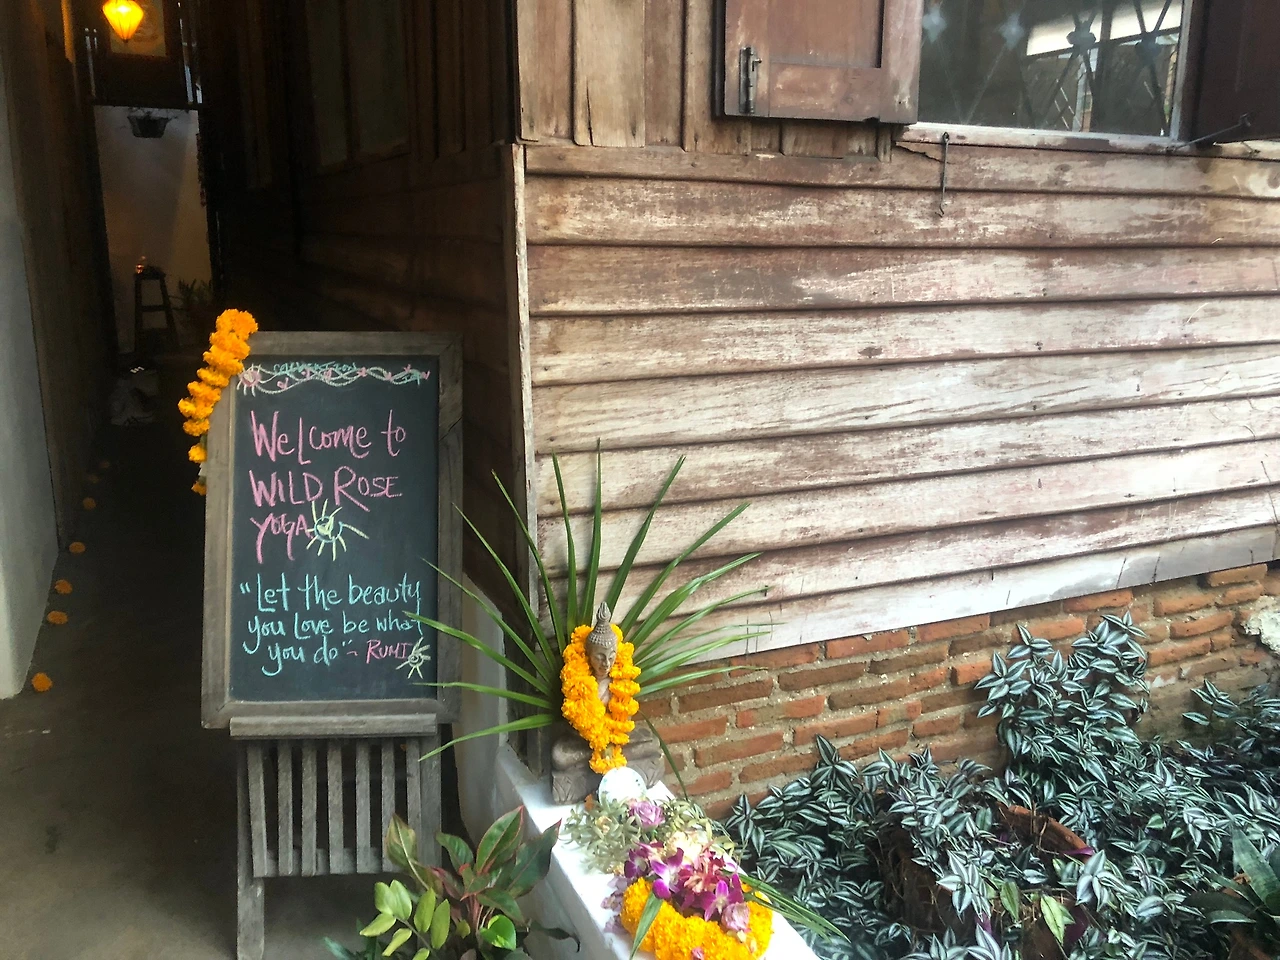 Welcome to
WILD ROSE
YOGA
"Let the beauty
you love be what
you do" - RUMI